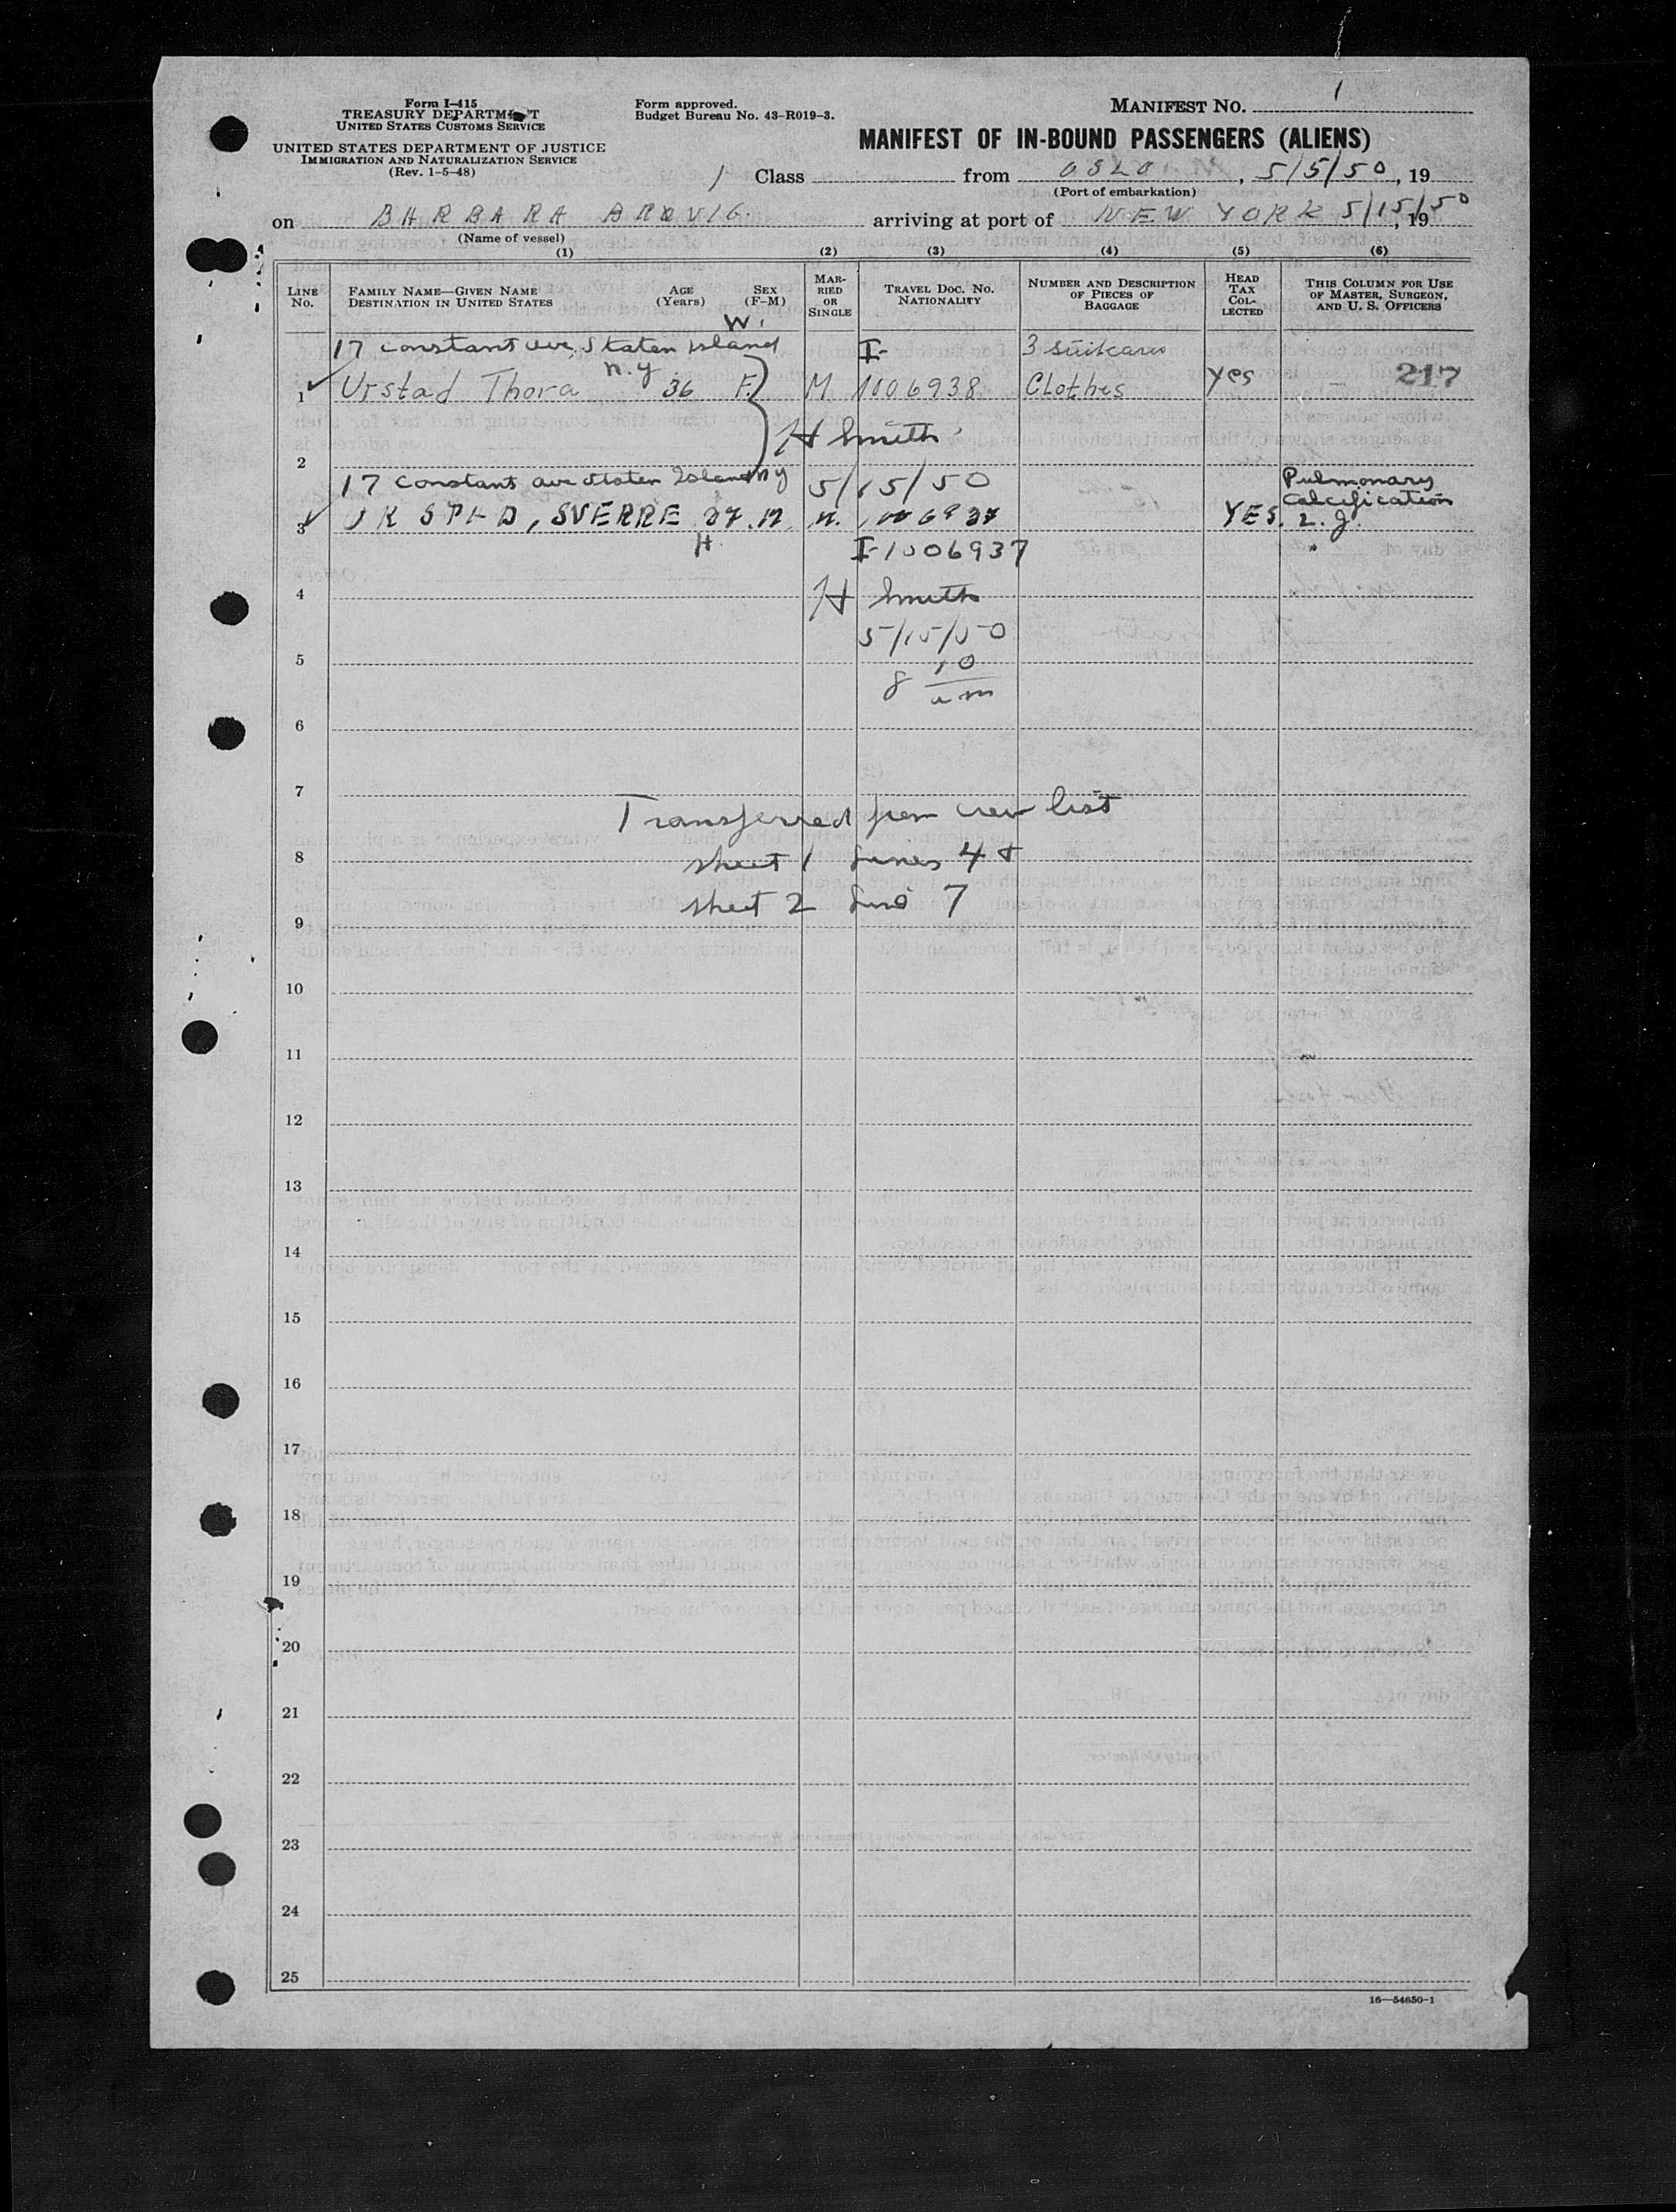 Form I-415
TREASURY DEPARTMENT
UNITED STATES CUSTOMS SERVICE
UNITED STATES DEPARTMENT OF JUSTICE
IMMIGRATION AND NATURALIZATION SERVICE
(Rev. 1-5-48)
Form approved.
Budget Bureau No. 43-R019-3.
MANIFEST NO. 1
MANIFEST OF IN-BOUND PASSENGERS (ALIENS)
1 Class from OSLO , 5/5/50, 19
(Port of embarkation)
on BARBARA BROVIG. arriving at port of NEW YORK 5/15/50, 19
(Name of vessel)
(1) (2) (3) (4) (5) (6)
LINE No. FAMILY NAME—GIVEN NAME DESTINATION IN UNITED STATES AGE (Years) SEX (F-M) MARRIED OR SINGLE TRAVEL DOC. NO. NATIONALITY NUMBER AND DESCRIPTION OF PIECES OF BAGGAGE HEAD TAX COLLECTED THIS COLUMN FOR USE OF MASTER, SURGEON, AND U. S. OFFICERS
W.
17 Constant ave. Staten Island I- 3 suitcases
n.y
1 Urstad Thora 36 F. M 1006938 Clothes Yes 217
H Smith
2
17 Constant ave Staten Island ny 5/15/50 Pulmonary
Calcification
3 SVERRE 37 M. 1006937 YES. L. J.
H. I-1006937
4 H Smith
5/15/50
5 8 10
am
6
7
Transferred from crew list
8 sheet 1 lines 4 &
sheet 2 line 7
9
10
11
12
13
14
15
16
17
18
19
20
21
22
23
24
25
16—54650-1